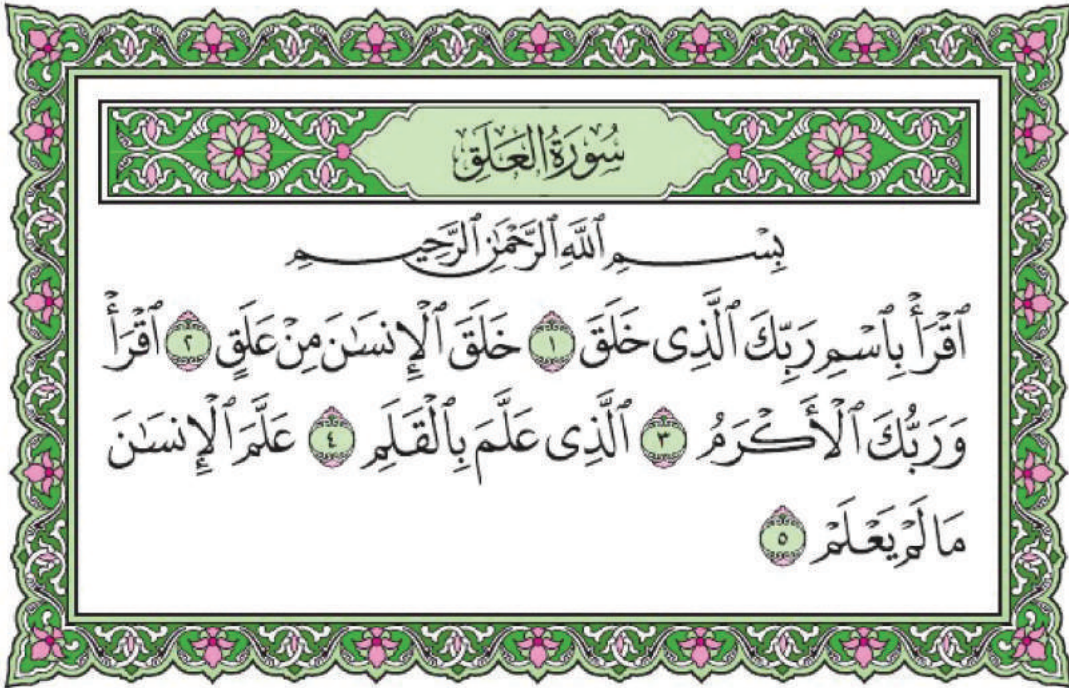 سُورَةُ العَلَقِ
بِسْمِ ٱللَّهِ ٱلرَّحْمَٰنِ ٱلرَّحِيمِ
ٱقْرَأْ بِٱسْمِ رَبِّكَ ٱلَّذِى خَلَقَ ١ خَلَقَ ٱلْإِنسَٰنَ مِنْ عَلَقٍ ٢ ٱقْرَأْ
وَرَبُّكَ ٱلْأَكْرَمُ ٣ ٱلَّذِى عَلَّمَ بِٱلْقَلَمِ ٤ عَلَّمَ ٱلْإِنسَٰنَ
مَا لَمْ يَعْلَمْ ٥